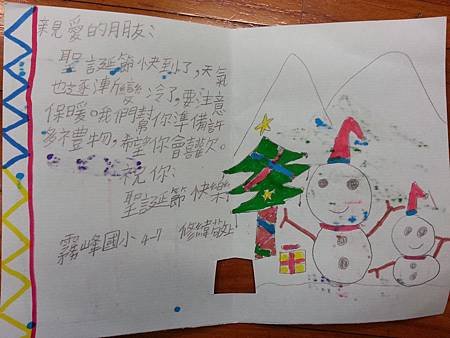 親愛的朋友：
聖誕節快到了，天氣
也逐漸變冷了，要注意
保暖。我們幫你準備許
多禮物，希望你會喜歡。
祝你：
聖誕節快樂
霧峰國小 4-7 修緯敬上